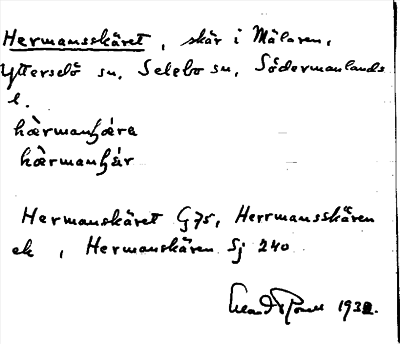 Hermansskäret, skär i Mälaren,
Ytterselö sn, Selebo sn, Södermanlands
l.
hærmanʃǽra
hærmanʃǽr
Hermanskäret G75, Herrmansskären
ek, Hermanskären Sj 240
1932.